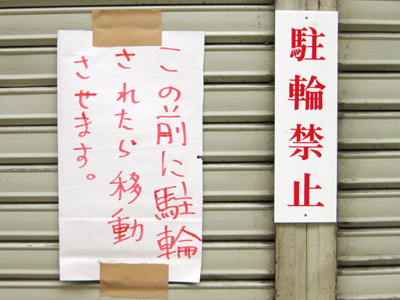 駐輪禁止
この前に駐輪
されたら移動
させます。